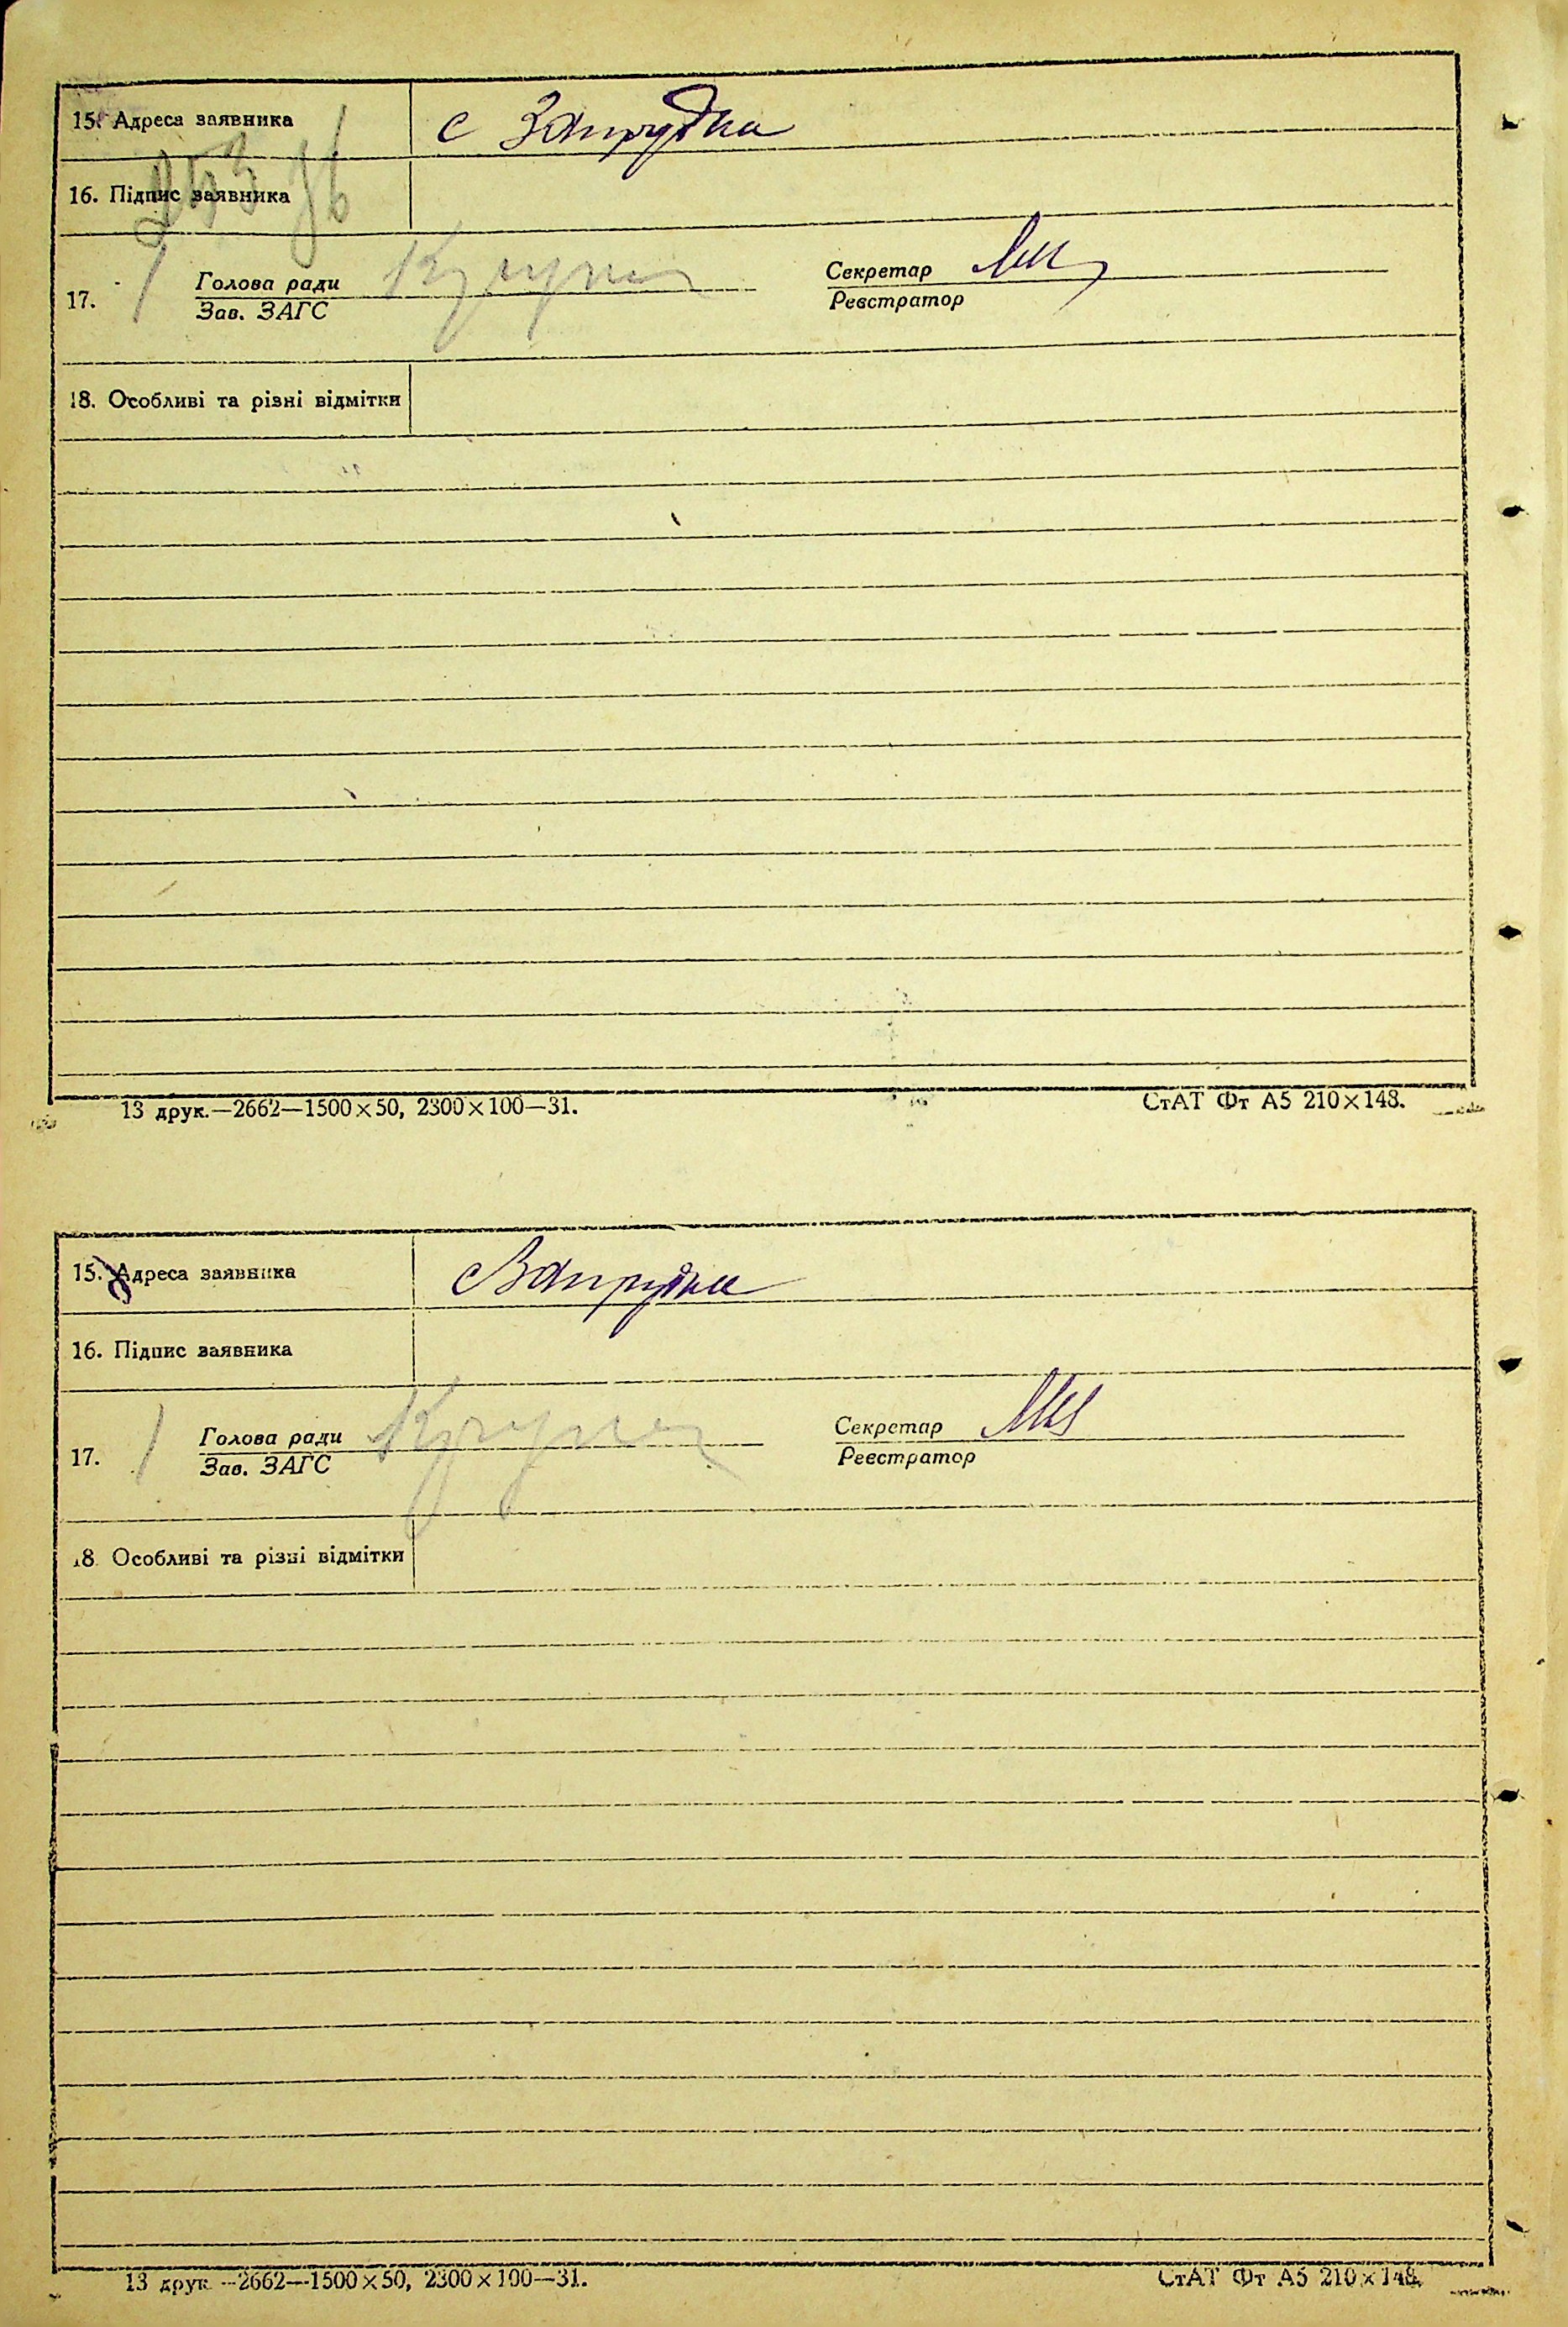 15. Адреса заявника с Запрудка
16. Підпис заявника
17. Голова ради Секретар
Зав. ЗАГС Реєстратор
18. Особливі та різні відмітки
13 друк.—2662—1500×50, 2300×100—31. СтАТ Фт А5 210×148.
15. Адреса заявника с Запрудка
16. Підпис заявника
17. Голова ради Секретар
Зав. ЗАГС Реєстратор
18. Особливі та різні відмітки
13 друк.—2662—1500×50, 2300×100—31. СтАТ Фт А5 210×148.